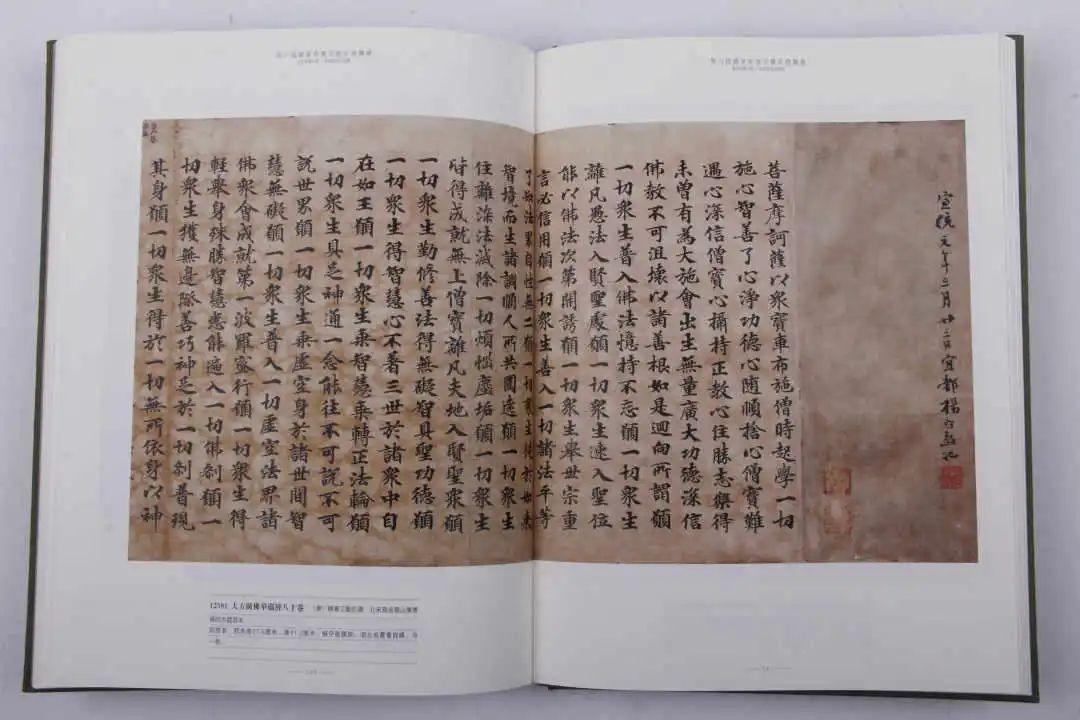 宣統元年三月廿三日宜都楊守敬記
菩薩摩訶薩以衆寶車布施僧時起學一切
施心智善了心淨功德心隨順捨心僧寶難
遇心深信僧寶心攝持正教心住勝志樂得
未曾有為大施會出生無量廣大功德深信
佛教不可沮壞以諸善根如是迴向所謂願
一切衆生普入佛法憶持不忘願一切衆生
離凡愚法入賢聖處願一切衆生速入聖位
能以佛法次第開誘願一切衆生舉世宗重
言必信用願一切衆生善入一切諸法平等
了知法界自性無二願一切衆生從於
智境而生諸調順人所共圍遶願一切衆生
住離染法滅除一切煩惱塵垢願一切衆生
皆得成就無上僧寶離凡夫地入賢聖衆願
一切衆生勤修善法得無礙智具聖功德願
一切衆生得智慧心不著三世於諸衆中自
在如王願一切衆生乘智慧乘轉正法輪願
一切衆生具足神通一念能往不可說不可
說世界願一切衆生乘虛空身於諸世間智
慧無礙願一切衆生普入一切虛空法界諸
佛衆會成就第一波羅蜜行願一切衆生得
輕舉身殊勝智慧悉能遍入一切佛剎願一
切衆生獲無邊際善巧神足於一切剎普現
其身願一切衆生得於一切無所依身以神
12581 大方廣佛華嚴經八十卷